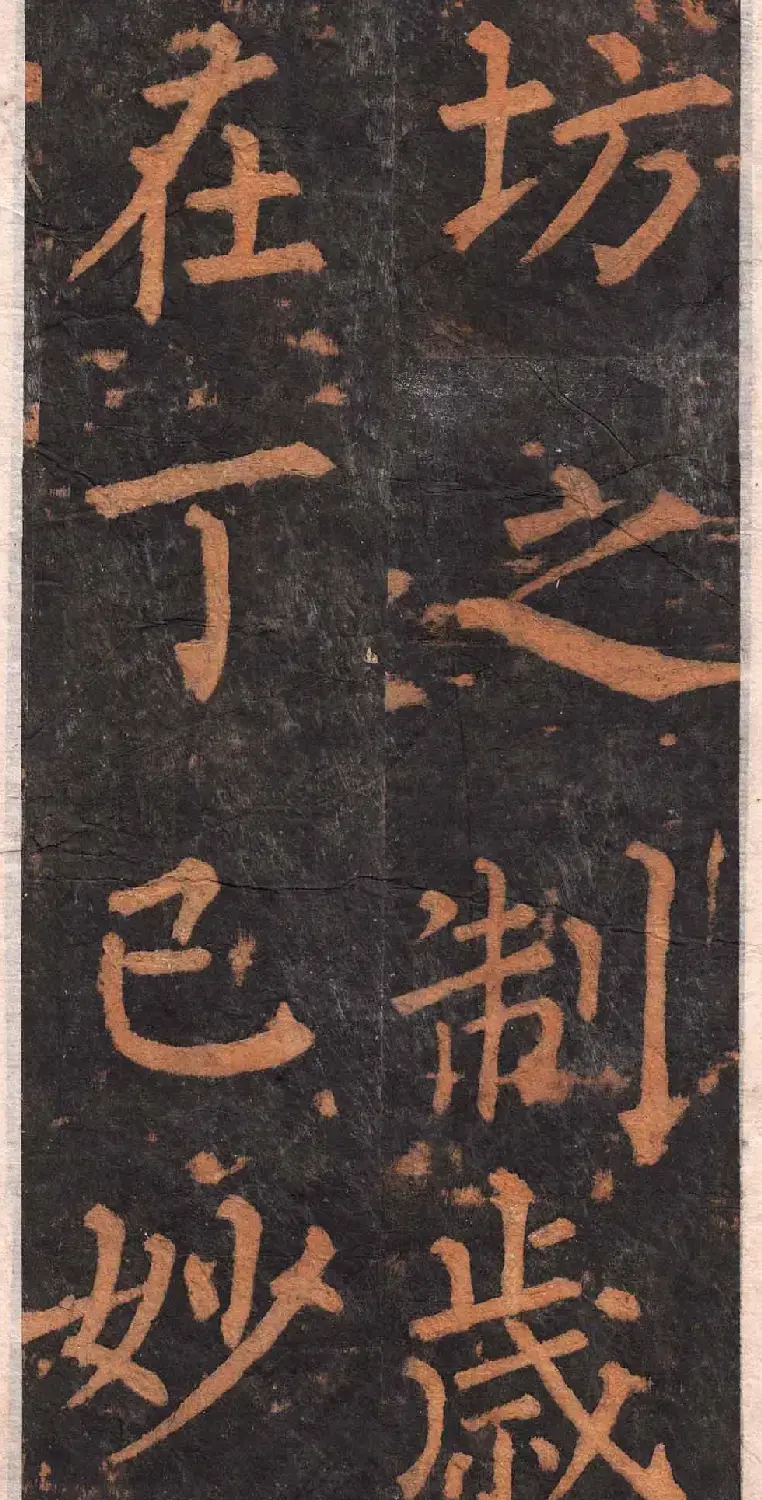 坊之制歲
在丁巳妙